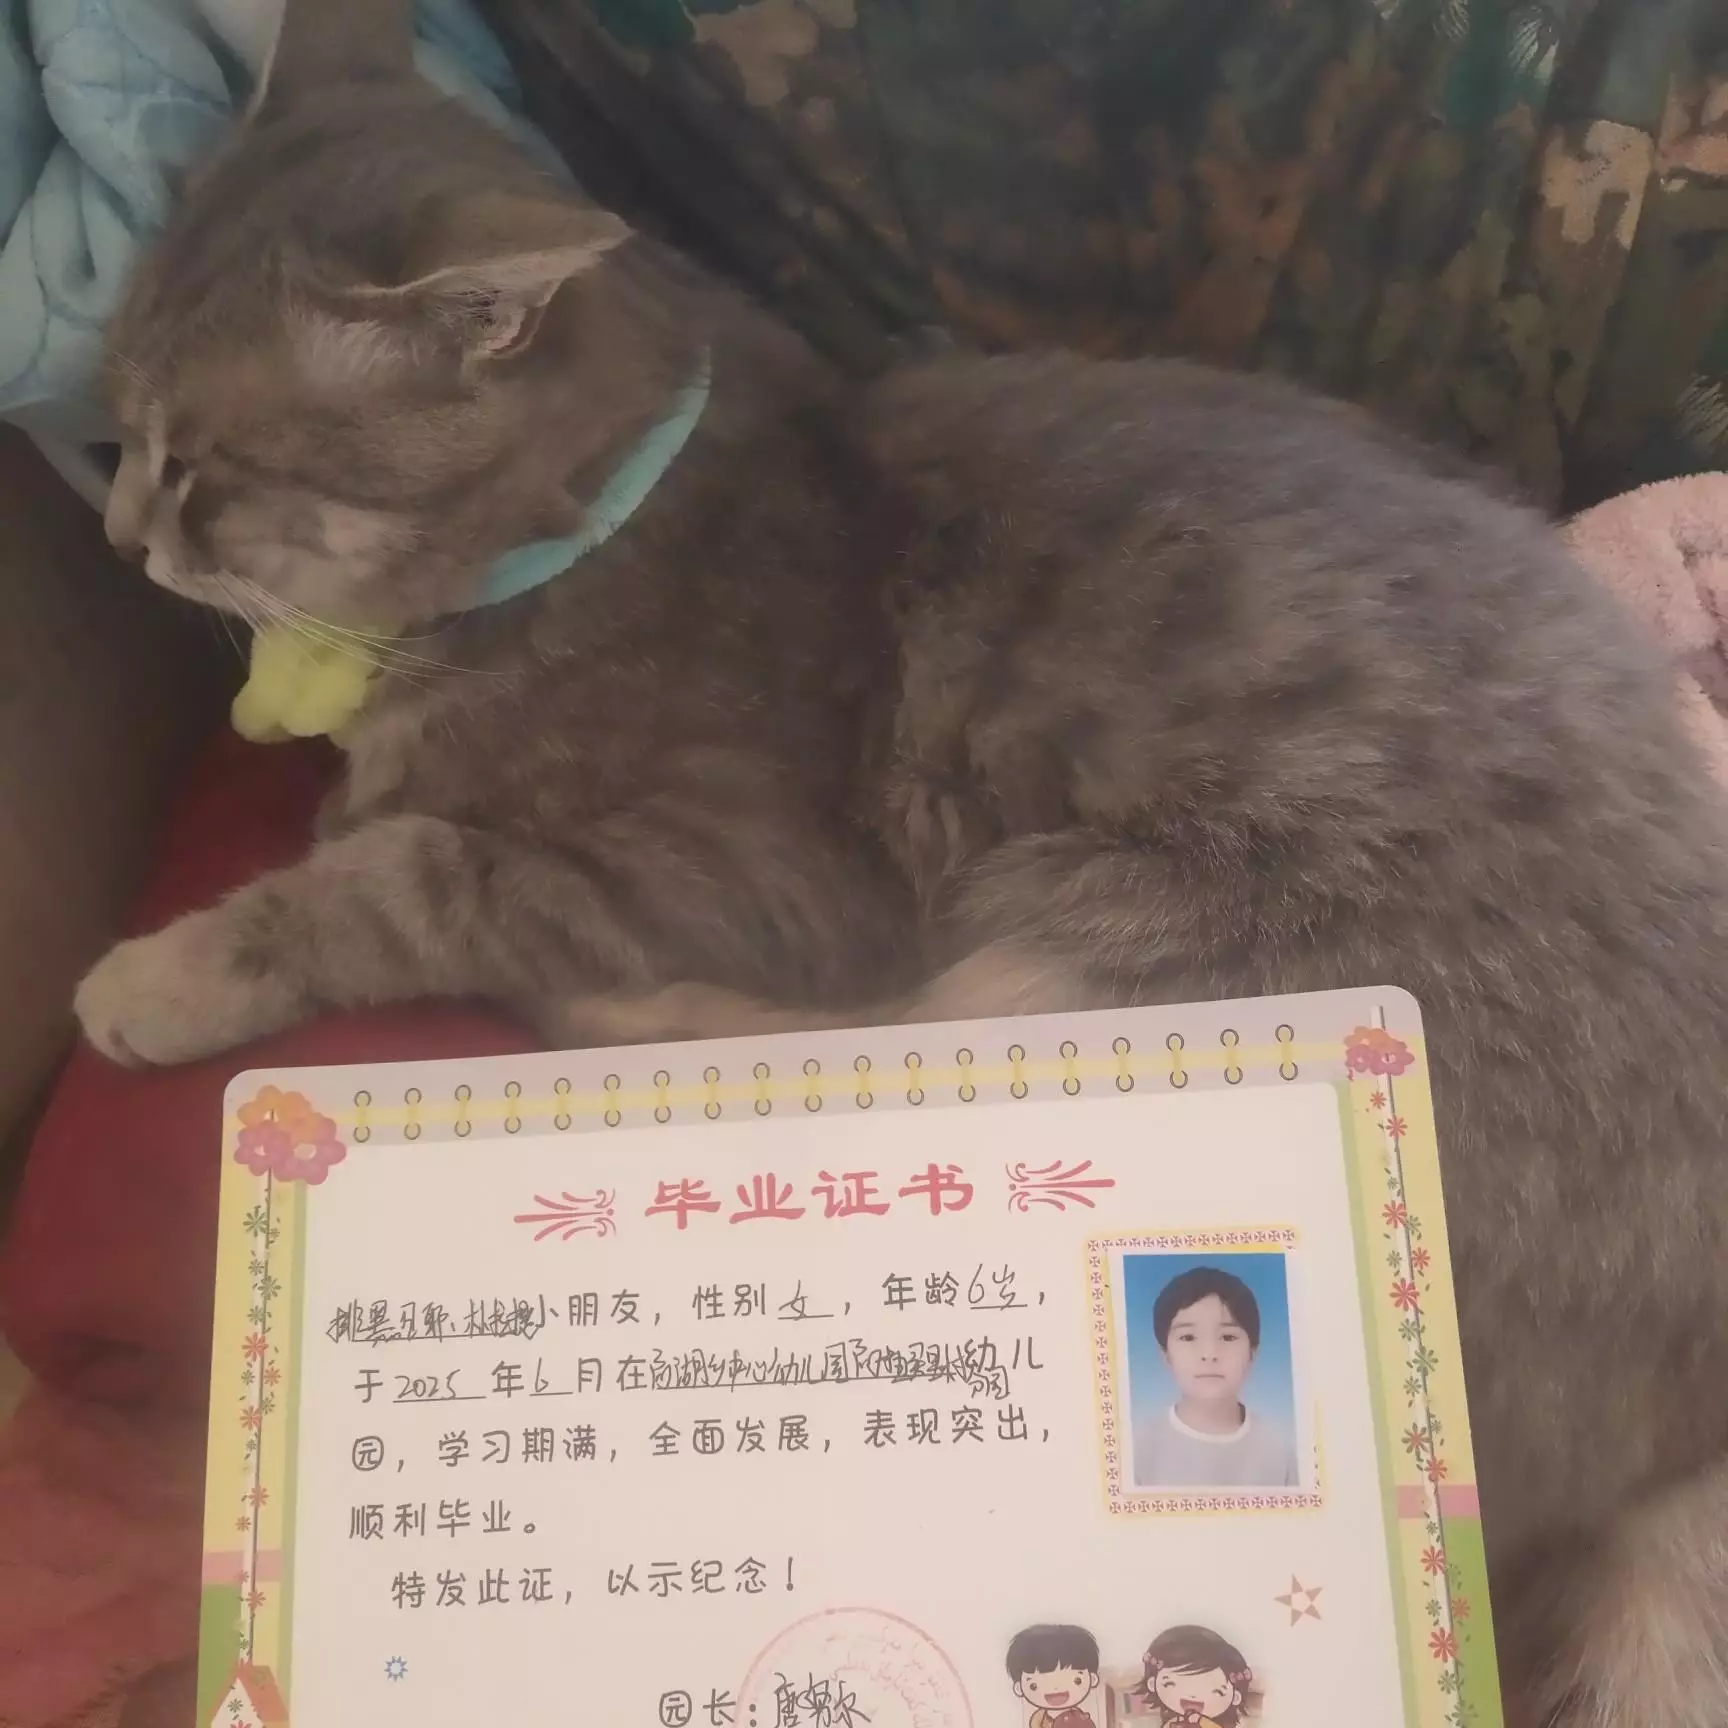 毕业证书
小朋友，性别女，年龄6岁，
于2025年6月在湖乡中心幼儿园幼儿
园，学习期满，全面发展，表现突出，
顺利毕业。
特发此证，以示纪念！
园长：